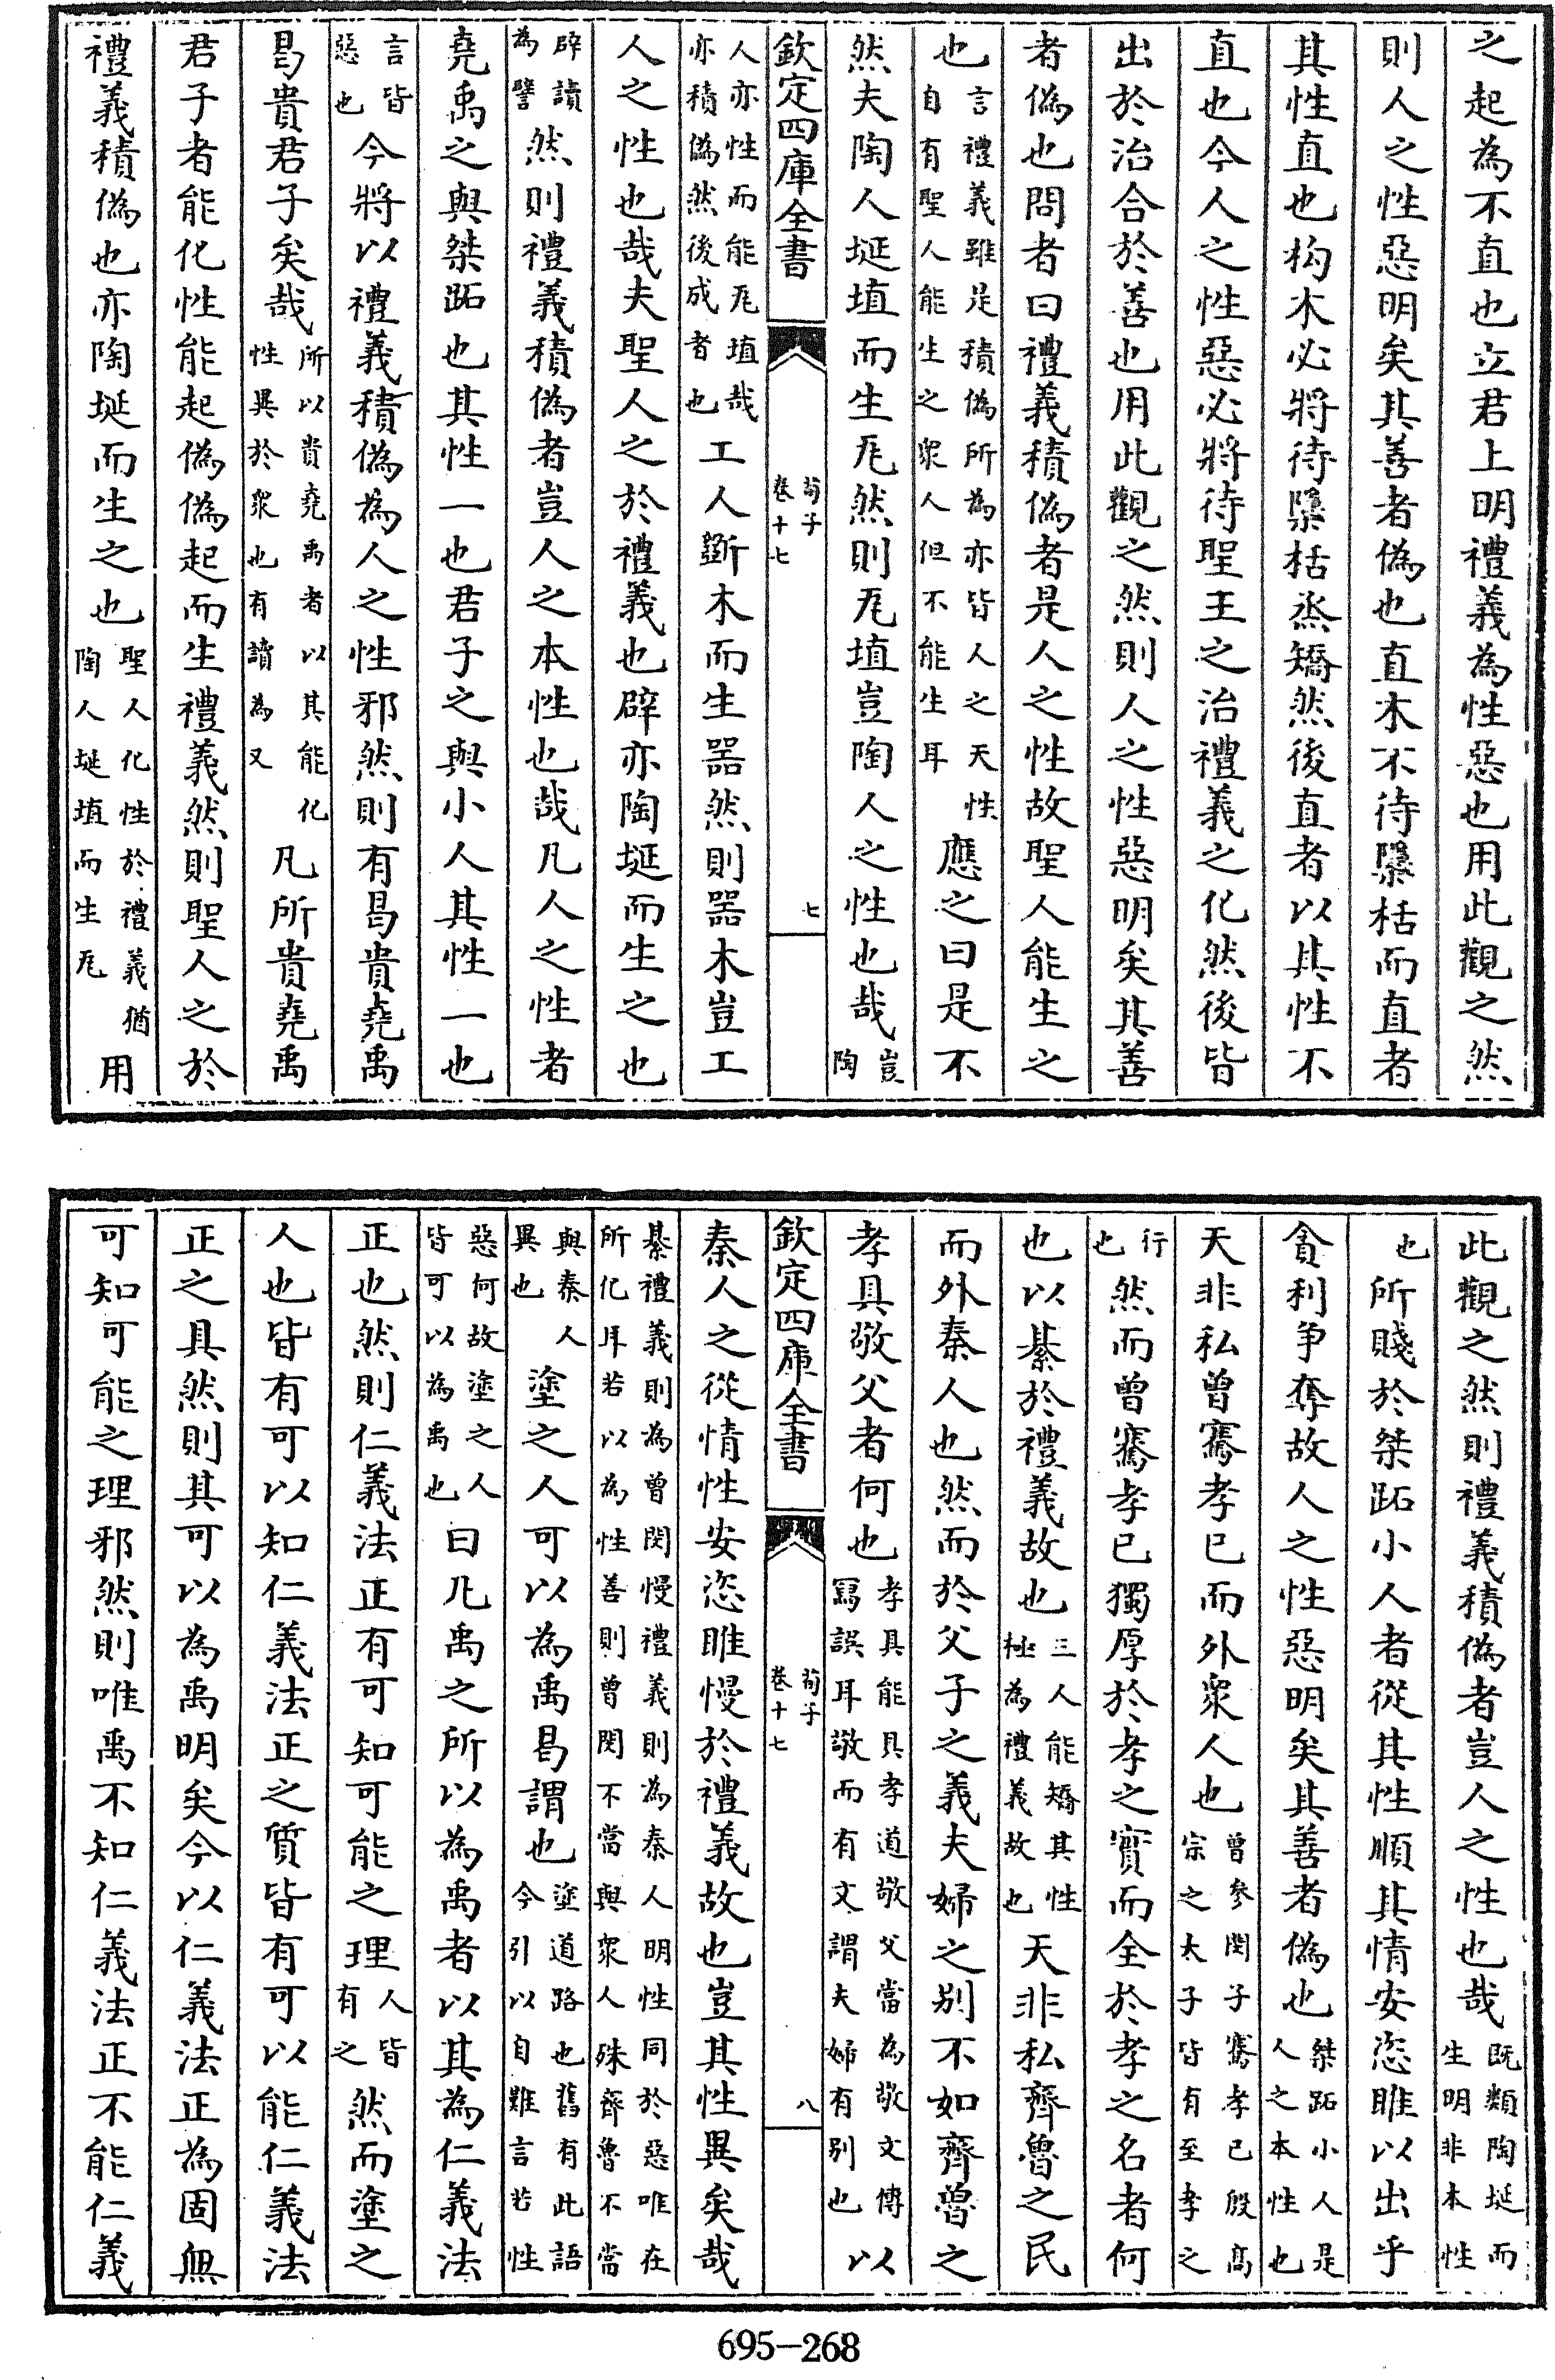 之起為不直也立君上明禮義為性惡也用此觀之然
則人之性惡明矣其善者偽也直木不待檃栝而直者
其性直也枸木必將待檃栝烝矯然後直者以其性不
直也今人之性惡必將待聖王之治禮義之化然後皆
出於治合於善也用此觀之然則人之性惡明矣其善
者偽也問者曰禮義積偽者是人之性故聖人能生之
也言禮義雖是積偽所為亦皆人之天性自有聖人能生之衆人但不能生耳應之曰是不
然夫陶人埏埴而生瓦然則瓦埴豈陶人之性也哉豈陶
欽定四庫全書 荀子 卷十七 七
人亦性而能瓦埴哉亦積偽然後成者也工人斲木而生器然則器木豈工
人之性也哉夫聖人之於禮義也辟亦陶埏而生之也
辟讀為譬然則禮義積偽者豈人之本性也哉凡人之性者
堯禹之與桀跖也其性一也君子之與小人其性一也
言皆惡也今將以禮義積偽為人之性邪然則有曷貴堯禹
曷貴君子矣哉所以貴堯禹者以其能化性異於衆也有讀為又凡所貴堯禹
君子者能化性能起偽偽起而生禮義然則聖人之於
禮義積偽也亦陶埏而生之也聖人化性於禮義猶陶人埏埴而生瓦用
此觀之然則禮義積偽者豈人之性也哉既類陶埏而生明非本性
也所賤於桀跖小人者從其性順其情安恣睢以出乎
貪利爭奪故人之性惡明矣其善者偽也桀跖小人是人之本性也
天非私曾騫孝已而外衆人也曾參閔子騫孝已殷高宗之太子皆有至孝之
行也然而曾騫孝已獨厚於孝之實而全於孝之名者何
也以綦於禮義故也三人能矯其性極為禮義故也天非私齊魯之民
而外秦人也然而於父子之義夫婦之別不如齊魯之
孝具敬父者何也孝具能具孝道敬父當為敬文傳寫誤耳敬而有文謂夫婦有別也以
欽定四庫全書 荀子 卷十七 八
秦人之從情性安恣睢慢於禮義故也豈其性異矣哉
綦禮義則為曾閔慢禮義則為秦人明性同於惡唯在所化耳若以為性善則曾閔不當與衆人殊齊魯不當
與秦人異也塗之人可以為禹曷謂也塗道路也舊有此語今引以自難言若性
惡何故塗之人皆可以為禹也曰凡禹之所以為禹者以其為仁義法
正也然則仁義法正有可知可能之理人皆有之然而塗之
人也皆有可以知仁義法正之質皆有可以能仁義法
正之具然則其可以為禹明矣今以仁義法正為固無
可知可能之理邪然則唯禹不知仁義法正不能仁義
695-268